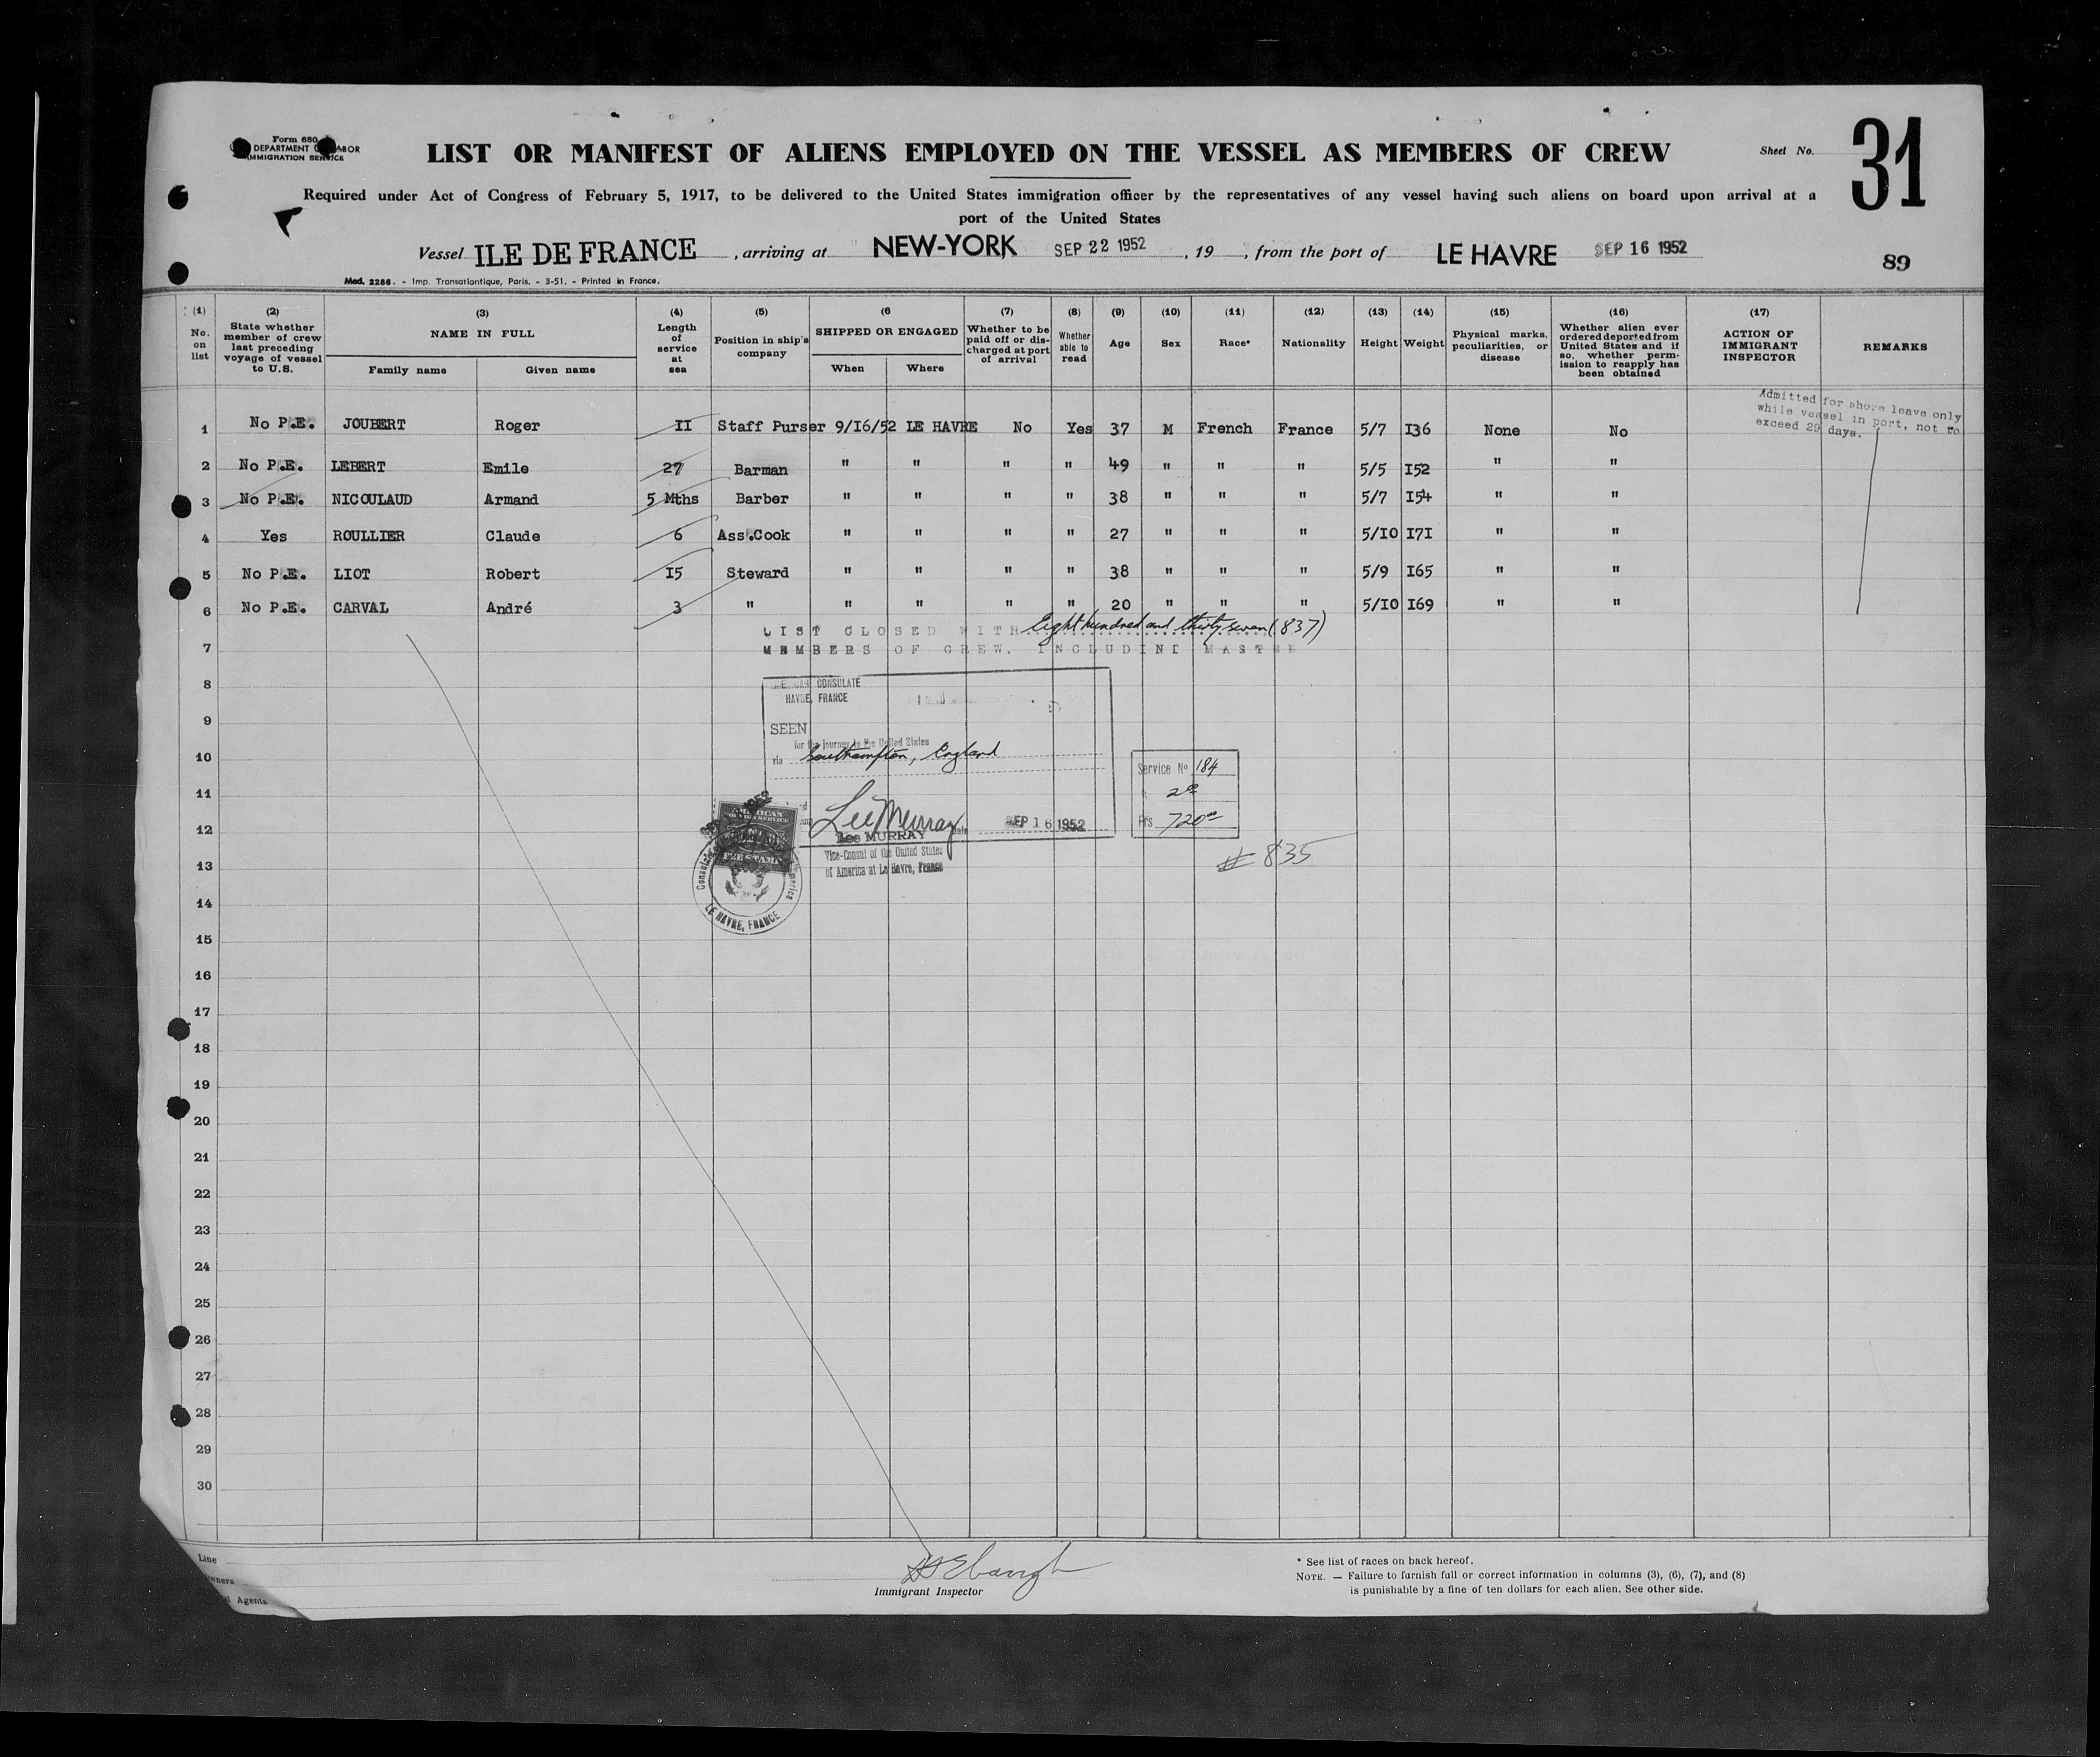 Form 680
DEPARTMENT LABOR
IMMIGRATION SERVICE
LIST OR MANIFEST OF ALIENS EMPLOYED ON THE VESSEL AS MEMBERS OF CREW
Sheet No. 31
Required under Act of Congress of February 5, 1917, to be delivered to the United States immigration officer by the representatives of any vessel having such aliens on board upon arrival at a
port of the United States
Vessel ILE DE FRANCE , arriving at NEW-YORK SEP 22 1952 , 19 , from the port of LE HAVRE SEP 16 1952
89
Mod. 2286. - Imp. Transatlantique, Paris. - 3-51. - Printed in France.
(1) No. on list
(2) State whether member of crew last preceding voyage of vessel to U.S.
(3) NAME IN FULL
Family name Given name
(4) Length of service at sea
(5) Position in ship's company
(6 SHIPPED OR ENGAGED
When Where
(7) Whether to be paid off or discharged at port of arrival
(8) Whether able to read
(9) Age
(10) Sex
(11) Race*
(12) Nationality
(13) Height
(14) Weight
(15) Physical marks, peculiarities, or disease
(16) Whether alien ever ordered deported from United States and if so, whether permission to reapply has been obtained
(17) ACTION OF IMMIGRANT INSPECTOR
REMARKS
Admitted for shore leave only
while vessel in port, not to
exceed 29 days.
1 No P.E. JOUBERT Roger II Staff Purser 9/16/52 LE HAVRE No Yes 37 M French France 5/7 I36 None No
2 No P.E. LEBERT Emile 27 Barman " " " " 49 " " " 5/5 I52 " "
3 No P.E. NICOULAUD Armand 5 Mths Barber " " " " 38 " " " 5/7 I54 " "
4 Yes ROULLIER Claude 6 Ass.Cook " " " " 27 " " " 5/IO I7I " "
5 No P.E. LIOT Robert I5 Steward " " " " 38 " " " 5/9 I65 " "
6 No P.E. CARVAL André 3 " " " " " 20 " " " 5/IO I69 " "
LIST CLOSED WITH Eight hundred and thirty seven (837)
7 MEMBERS OF CREW. INCLUDING MASTER
8 CONSULATE
HAVRE, FRANCE
9 SEEN
for the journey to the United States
10 via Southampton, England
Service No 184
11 2.00
12 Lee Murray
Lee MURRAY Date SEP 16 1952
Frs 720.00
Vice-Consul of the United States
of America at Le Havre, France
FEE STAMP
LE HAVRE, FRANCE
13 # 835
14
15
16
17
18
19
20
21
22
23
24
25
26
27
28
29
30
Line
Agents
Immigrant Inspector
* See list of races on back hereof.
NOTE. — Failure to furnish full or correct information in columns (3), (6), (7), and (8)
is punishable by a fine of ten dollars for each alien. See other side.